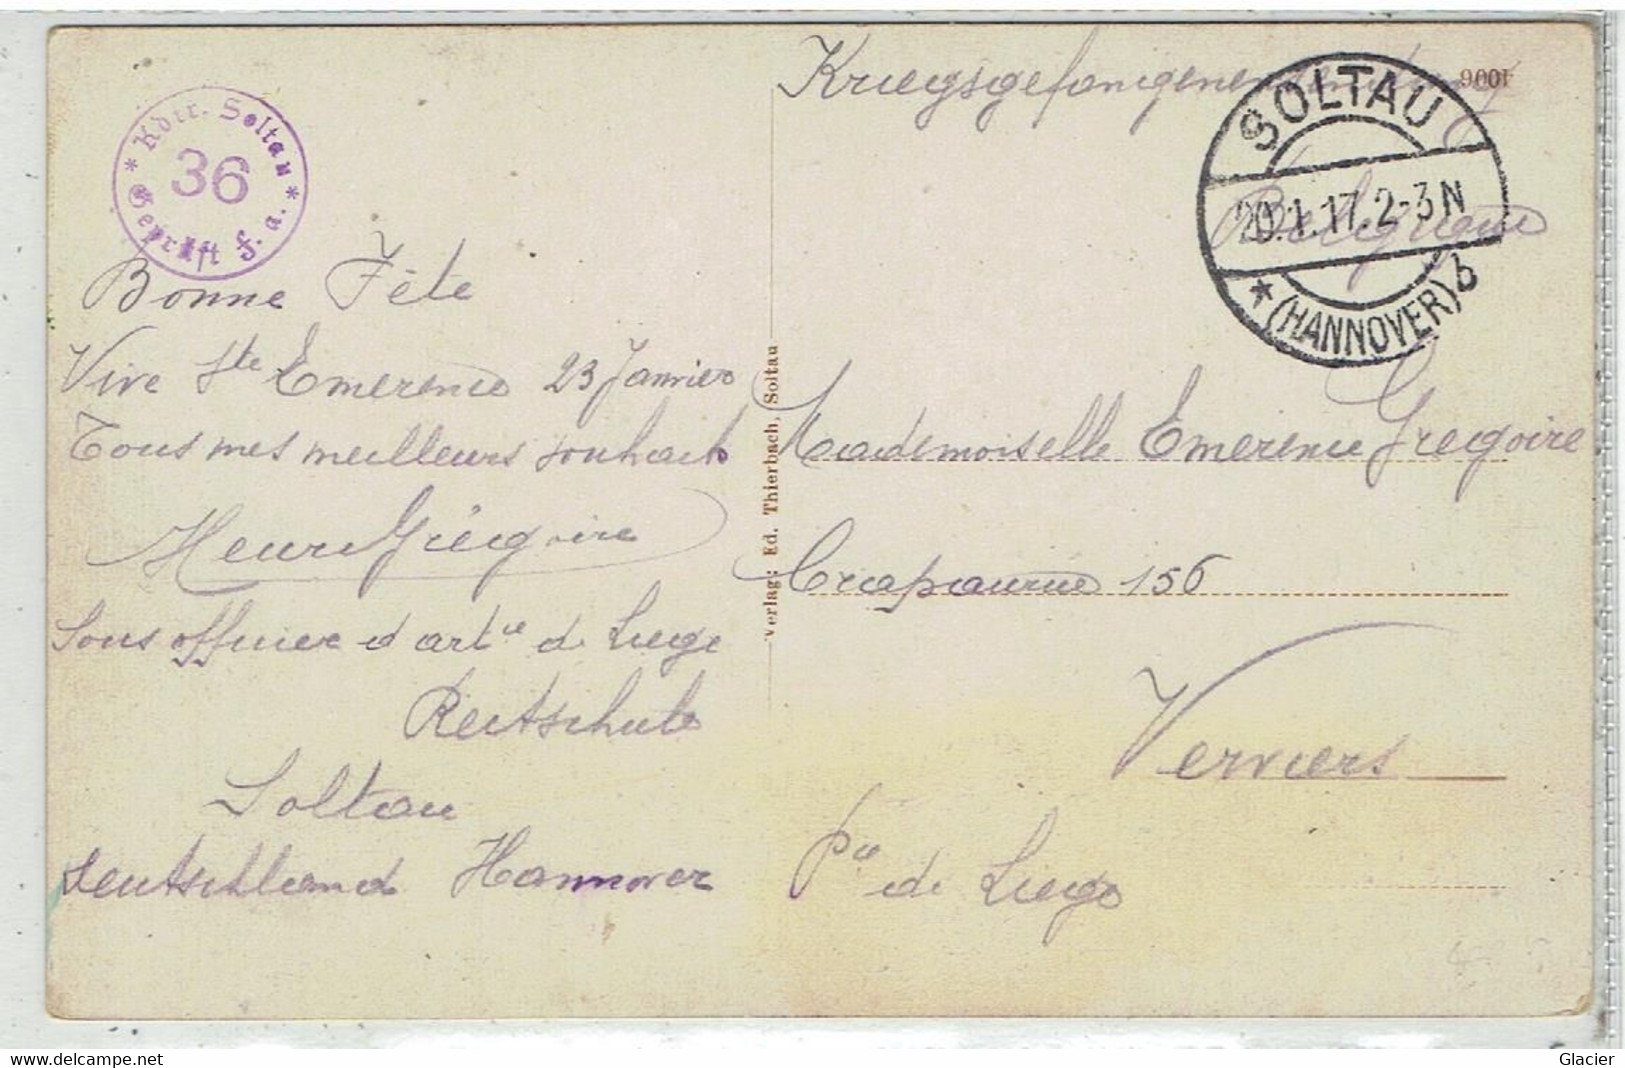 * Kdtr. Soltau *
36
Geprüft F. a.
Bonne Fête
Vive Ste Emerence 23 Janvier
Tous mes meilleurs souhaits
Henri Grégoire
Sous officier d'artie de Liege
Reitschule
Soltau
Deutschland Hannover
Verlag: Ed. Thierbach, Soltau
Kriegsgefangenensendung
9001
SOLTAU
20.1.17.2-3N
* (HANNOVER) b
Belgique
Mademoiselle Emerence Gregoire
Crapaurue 156
Verviers
Pce de Liege
Glacier